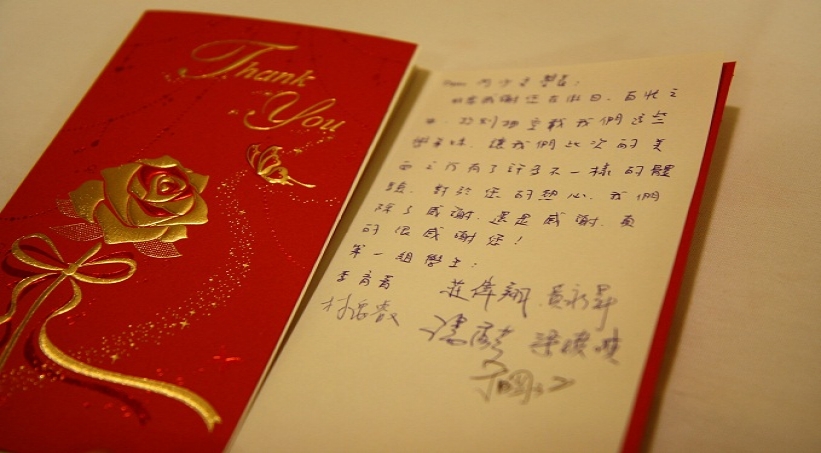 Thank
You
Dear
非常感謝您在假日、百忙之
中、特別抽空載我們這些
學弟妹、讓我們此次的美
西之行有了許多不一樣的體
驗、對於您的熱心、我們
除了感謝、還是感謝、真
的很感謝您！
第一組學生：
李育菁 莊偉翔 黃永昇